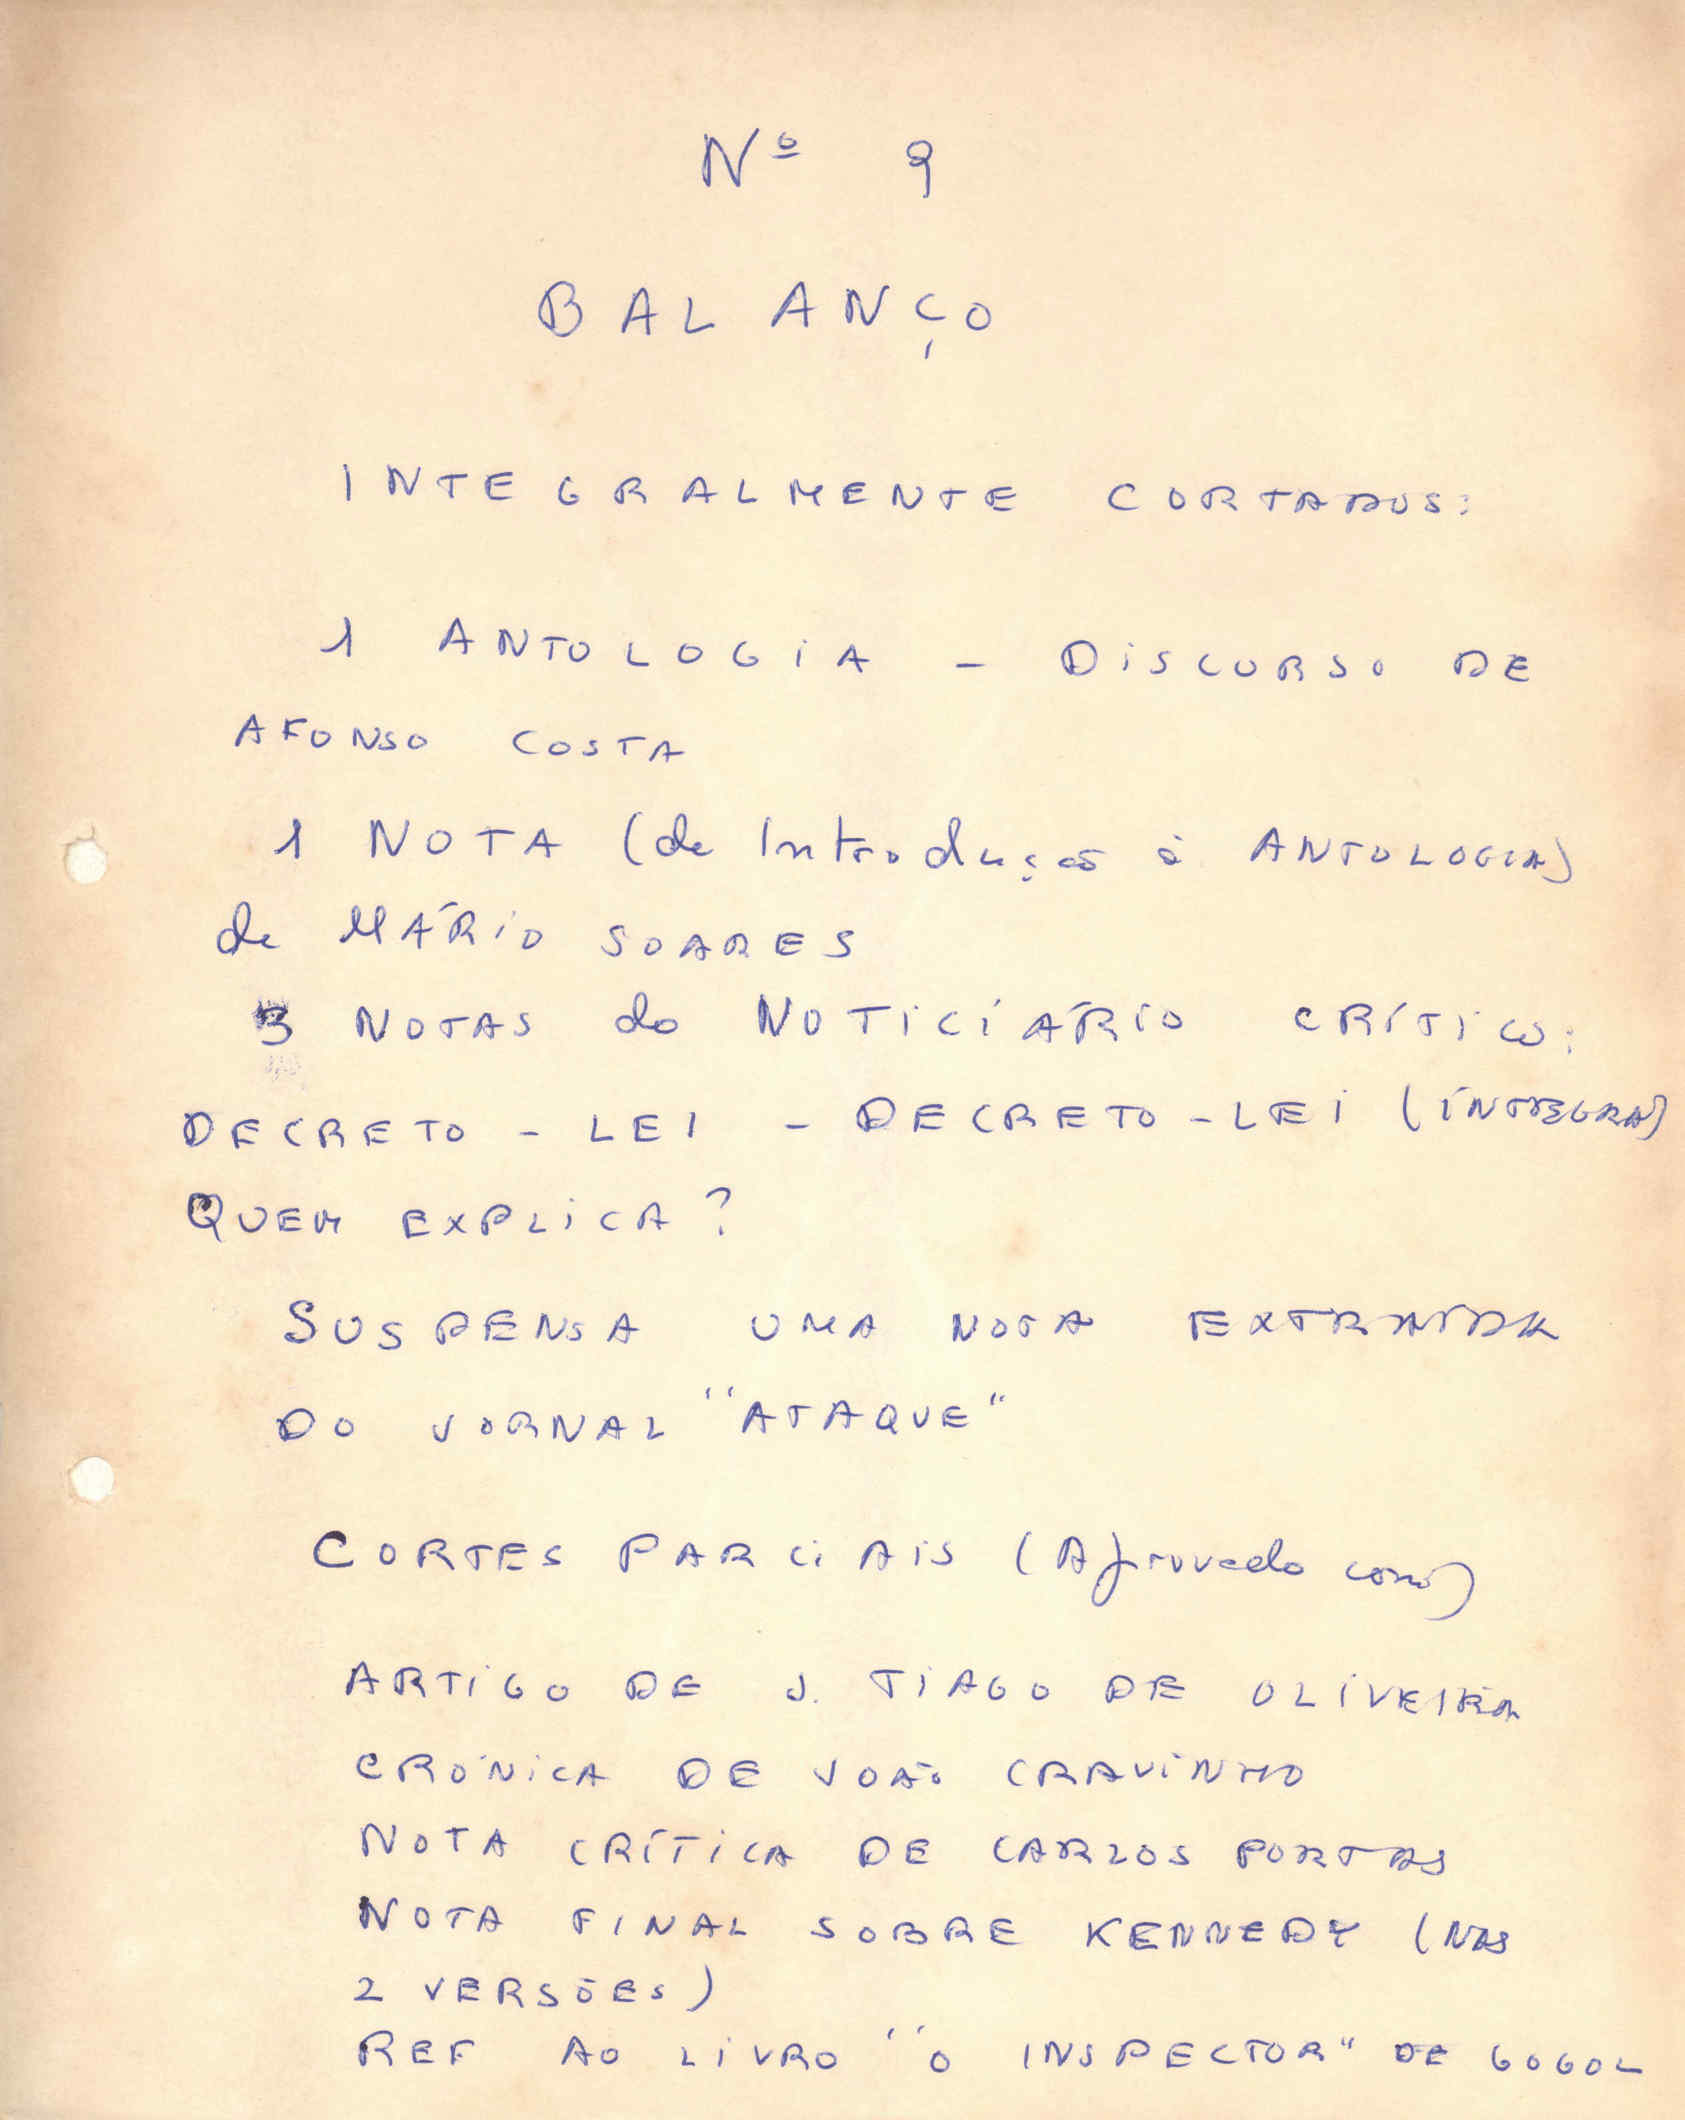 Nº 9
BALANÇO
INTEGRALMENTE CORTADOS:
1 ANTOLOGIA - DISCURSO DE
AFONSO COSTA
1 NOTA (de Introdução à ANTOLOGIA)
de MÁRIO SOARES
3 NOTAS do NOTICIÁRIO CRÍTICO:
DECRETO - LEI - DECRETO - LEI (ÍNTEGRA)
QUEM EXPLICA?
SUSPENSA UMA NOTA EXTRAÍDA
DO JORNAL "ATAQUE"
CORTES PARCIAIS (Aprovado com)
ARTIGO DE J. TIAGO DE OLIVEIRA
CRÓNICA DE JOÃO CRAVINHO
NOTA CRÍTICA DE CARLOS PORTAS
NOTA FINAL SOBRE KENNEDY (NAS
2 VERSÕES)
REF AO LIVRO "O INSPECTOR" DE GOGOL